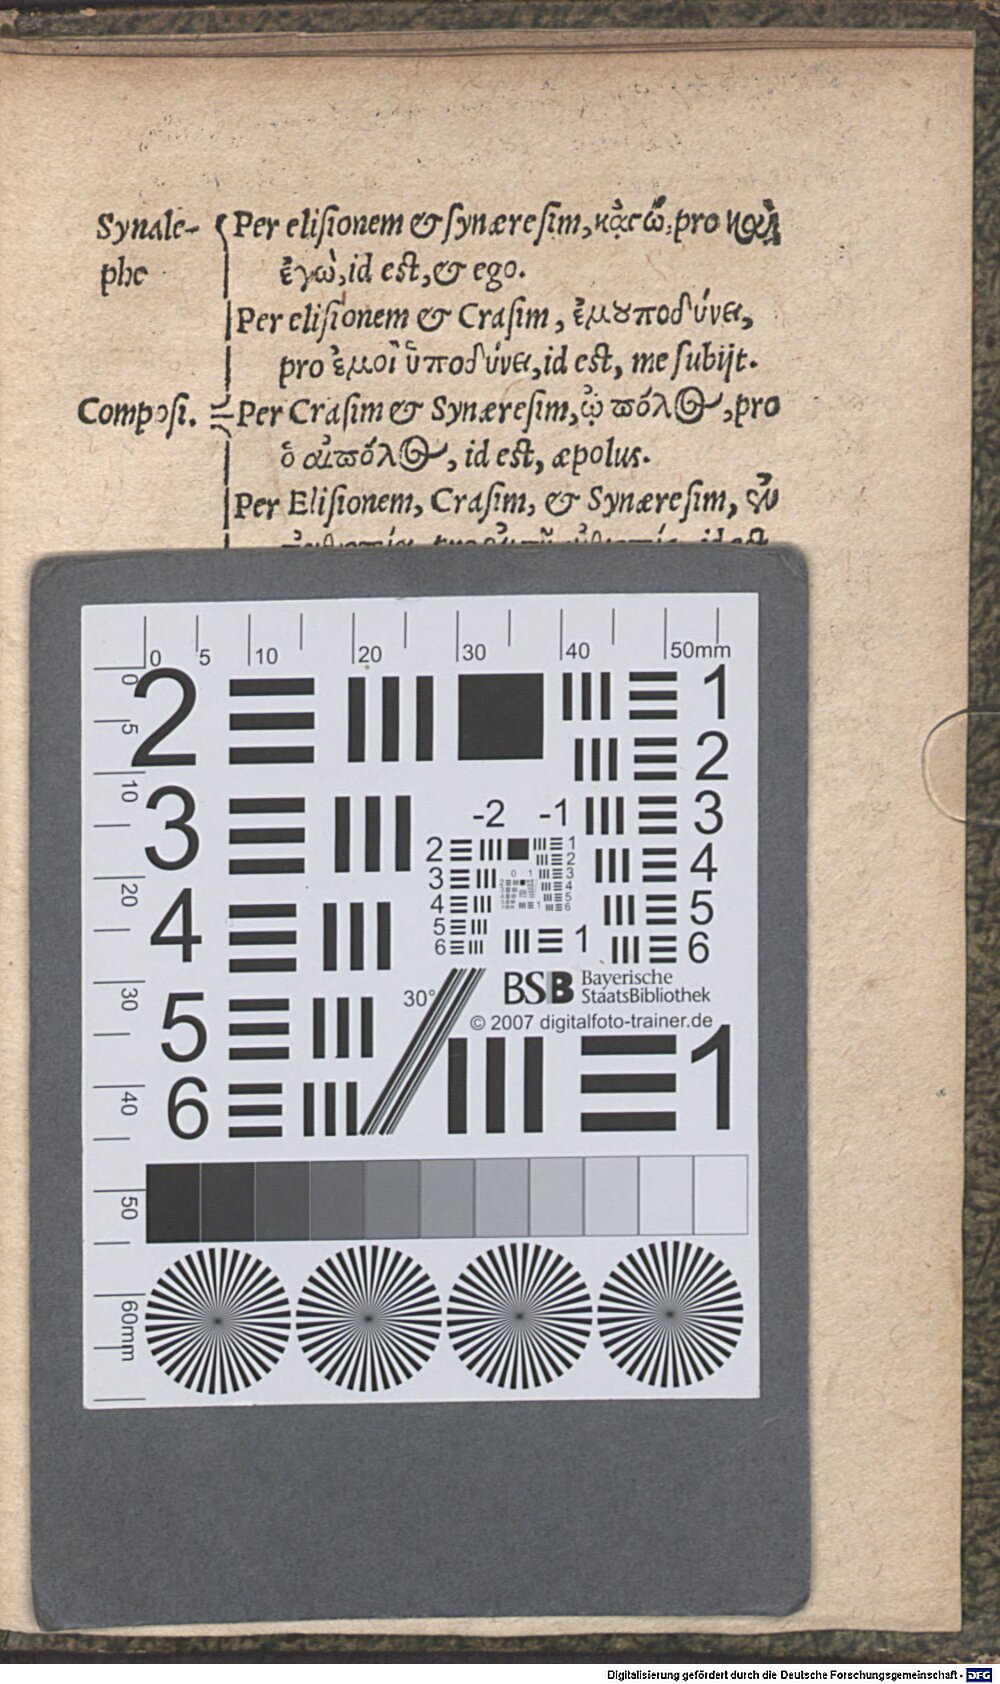 Synale- Per elisionem & synæresim, κᾀγὼ, pro καὶ
phe ἐγὼ, id est, & ego.
Per elisionem & Crasim, ἐμȣποδύνει,
pro ἐμοὶ ὑποδύνει, id est, me subijt.
Composi. Per Crasim & Synæresim, ᾠπόλος, pro
ὁ αἰπόλος, id est, æpolus.
Per Elisionem, Crasim, & Synæresim,
id est
0 5 10 20 30 40 50mm
0 5 10 20 30 40 50 60mm
2 1
2
3 -2 -1 3
2 1
2
3 0 1 3
4 4
4 5 5
6 1 6
5 1 6
30°
BSB Bayerische
StaatsBibliothek
© 2007 digitalfoto-trainer.de
6 1
Digitalisierung gefördert durch die Deutsche Forschungsgemeinschaft - DFG